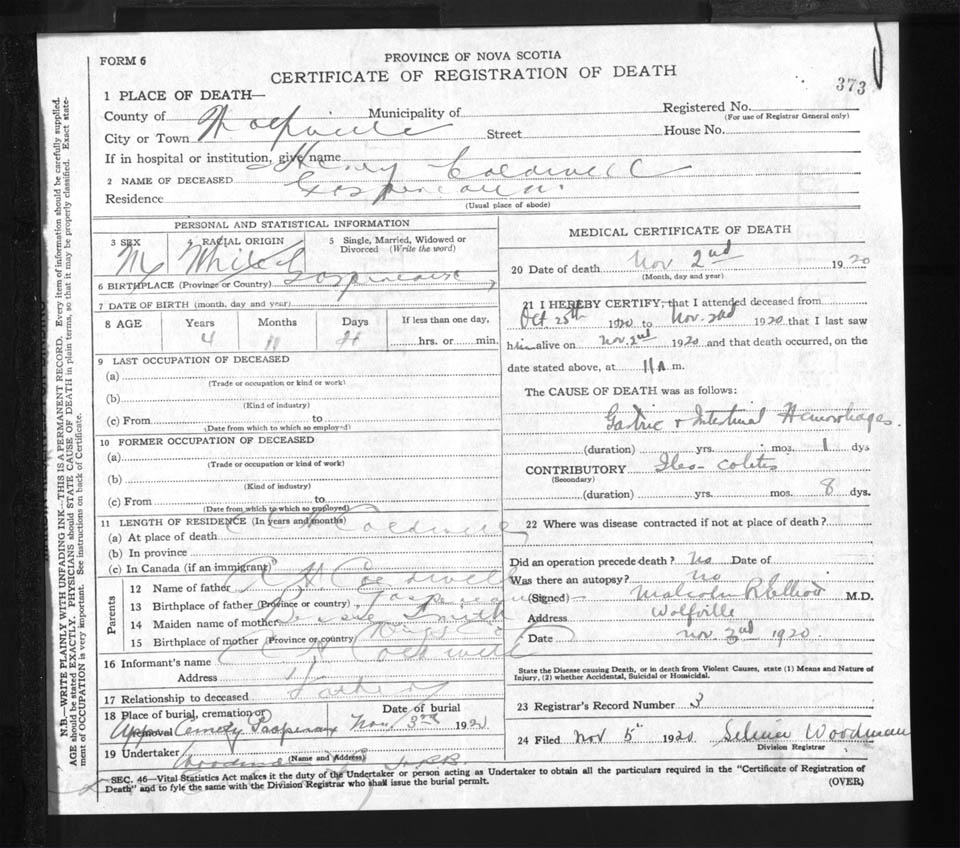 FORM 6
PROVINCE OF NOVA SCOTIA
CERTIFICATE OF REGISTRATION OF DEATH
373
1 PLACE OF DEATH—
County of Municipality of Registered No.
(For use of Registrar General only)
City or Town Wolfville Street House No.
If in hospital or institution, give name
2 NAME OF DECEASED Coldwell
Residence Gaspereau
(Usual place of abode)
PERSONAL AND STATISTICAL INFORMATION
3 SEX 4 RACIAL ORIGIN 5 Single, Married, Widowed or Divorced (Write the word)
M White
6 BIRTHPLACE (Province or Country) Gaspereau
7 DATE OF BIRTH (month, day and year)
8 AGE Years Months Days If less than one day,
4 11 hrs. or min.
9 LAST OCCUPATION OF DECEASED
(a)
(Trade or occupation or kind or work)
(b)
(Kind of industry)
(c) From to
(Date from which to which so employed)
10 FORMER OCCUPATION OF DECEASED
(a)
(Trade or occupation or kind of work)
(b)
(Kind of industry)
(c) From to
(Date from which to which so employed)
11 LENGTH OF RESIDENCE (In years and months)
(a) At place of death
(b) In province
(c) In Canada (if an immigrant)
Parents
12 Name of father Coldwell
13 Birthplace of father (Province or country) Gaspereau
14 Maiden name of mother Smith
15 Birthplace of mother (Province or country) Kings Co
16 Informant's name Coldwell
Address
17 Relationship to deceased Father
18 Place of burial, cremation or removal Date of burial
Cemety Gaspereau Nov 3rd 1920
19 Undertaker
(Name and Address)
MEDICAL CERTIFICATE OF DEATH
20 Date of death Nov 2nd 1920
(Month, day and year)
21 I HEREBY CERTIFY, that I attended deceased from
Oct 25th 1920 to Nov. 2nd 1920 that I last saw
him alive on Nov. 2nd 1920 and that death occurred, on the
date stated above, at 11 A m.
The CAUSE OF DEATH was as follows:
Gastric + Intestinal Hemorrhages.
(duration) yrs. mos. 1 dys
CONTRIBUTORY Ileo-colitis
(Secondary)
(duration) yrs. mos. 8 dys.
22 Where was disease contracted if not at place of death?
Did an operation precede death? No Date of
Was there an autopsy? No
(Signed) Malcolm R Elliott M.D.
Address Wolfville
Date Nov. 2nd 1920
State the Disease causing Death, or in death from Violent Causes, state (1) Means and Nature of
Injury, (2) whether Accidental, Suicidal or Homicidal.
23 Registrar's Record Number 3
24 Filed Nov 5 1920 Woodman
Division Registrar
SEC. 46—Vital Statistics Act makes it the duty of the Undertaker or person acting as Undertaker to obtain all the particulars required in the "Certificate of Registration of
Death" and to fyle the same with the Division Registrar who shall issue the burial permit. (OVER)
N.B.—WRITE PLAINLY WITH UNFADING INK—THIS IS A PERMANENT RECORD. Every item of information should be carefully supplied.
AGE should be stated EXACTLY. PHYSICIANS should STATE CAUSE OF DEATH in plain terms, so that it may be properly classified. Exact state-
ment of OCCUPATION is very important. See instructions on back of Certificate.